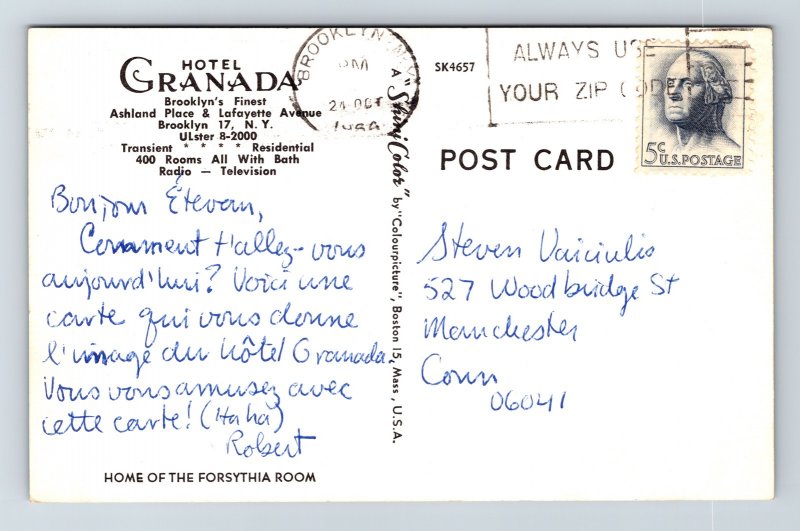 HOTEL
GRANADA
Brooklyn's Finest
Ashland Place & Lafayette Avenue
Brooklyn 17, N. Y.
ULster 8-2000
Transient * * * * Residential
400 Rooms All With Bath
Radio — Television
Bonjour Étevan,
Comment t'allez-vous
aujourd'hui? Voici une
carte qui vous donne
l'image du hôtel Granada.
Vous vous amusez avec
cette carte! (Haha)
Robert
HOME OF THE FORSYTHIA ROOM
BROOKLYN, N.Y.
PM
24 OCT
A "Shini-Color" by "Colourpicture", Boston 15, Mass., U.S.A.
SK4657
ALWAYS USE
YOUR ZIP CODE
5c
U.S. POSTAGE
POST CARD
Steven Vaiciulis
527 Woodbridge St
Manchester
Conn
06041